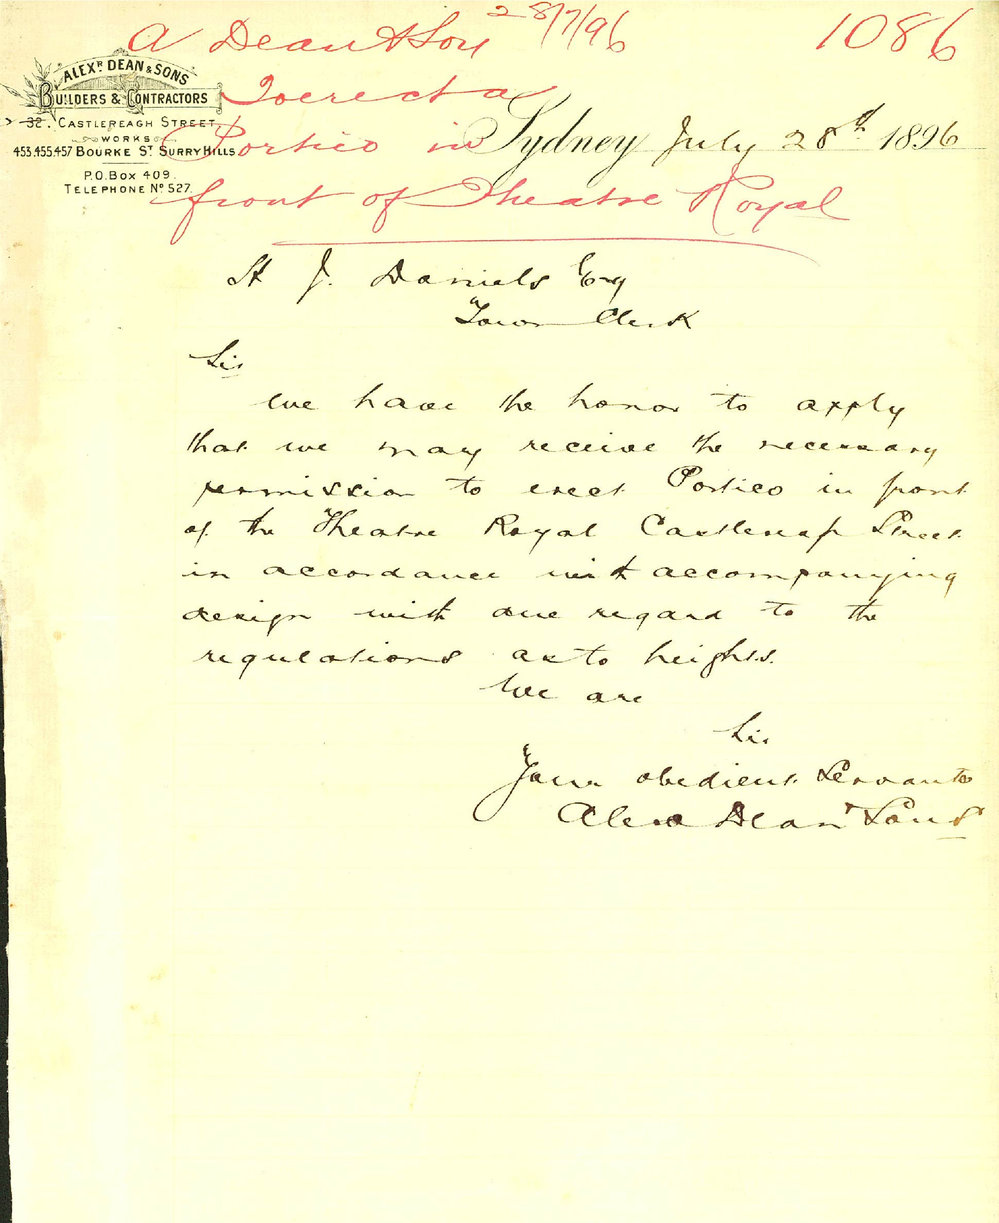 A Dean & Son 28/7/96
1086
To erect a
Portico in
front of Theatre Royal
ALEXR. DEAN & SONS
BUILDERS & CONTRACTORS
32. CASTLEREAGH STREET
WORKS
453.455.457 BOURKE ST. SURRY HILLS
P.O. BOX 409.
TELEPHONE No 527.
Sydney July 28th 1896
H J. Daniels Esq
Town Clerk
Sir
We have the honor to apply
that we may receive the necessary
permission to erect Portico in front
of the Theatre Royal Castlereagh Street
in accordance with accompanying
design with due regard to the
regulations as to heights.
We are
Sir
Your obedient Servants
Alex Dean & Sons